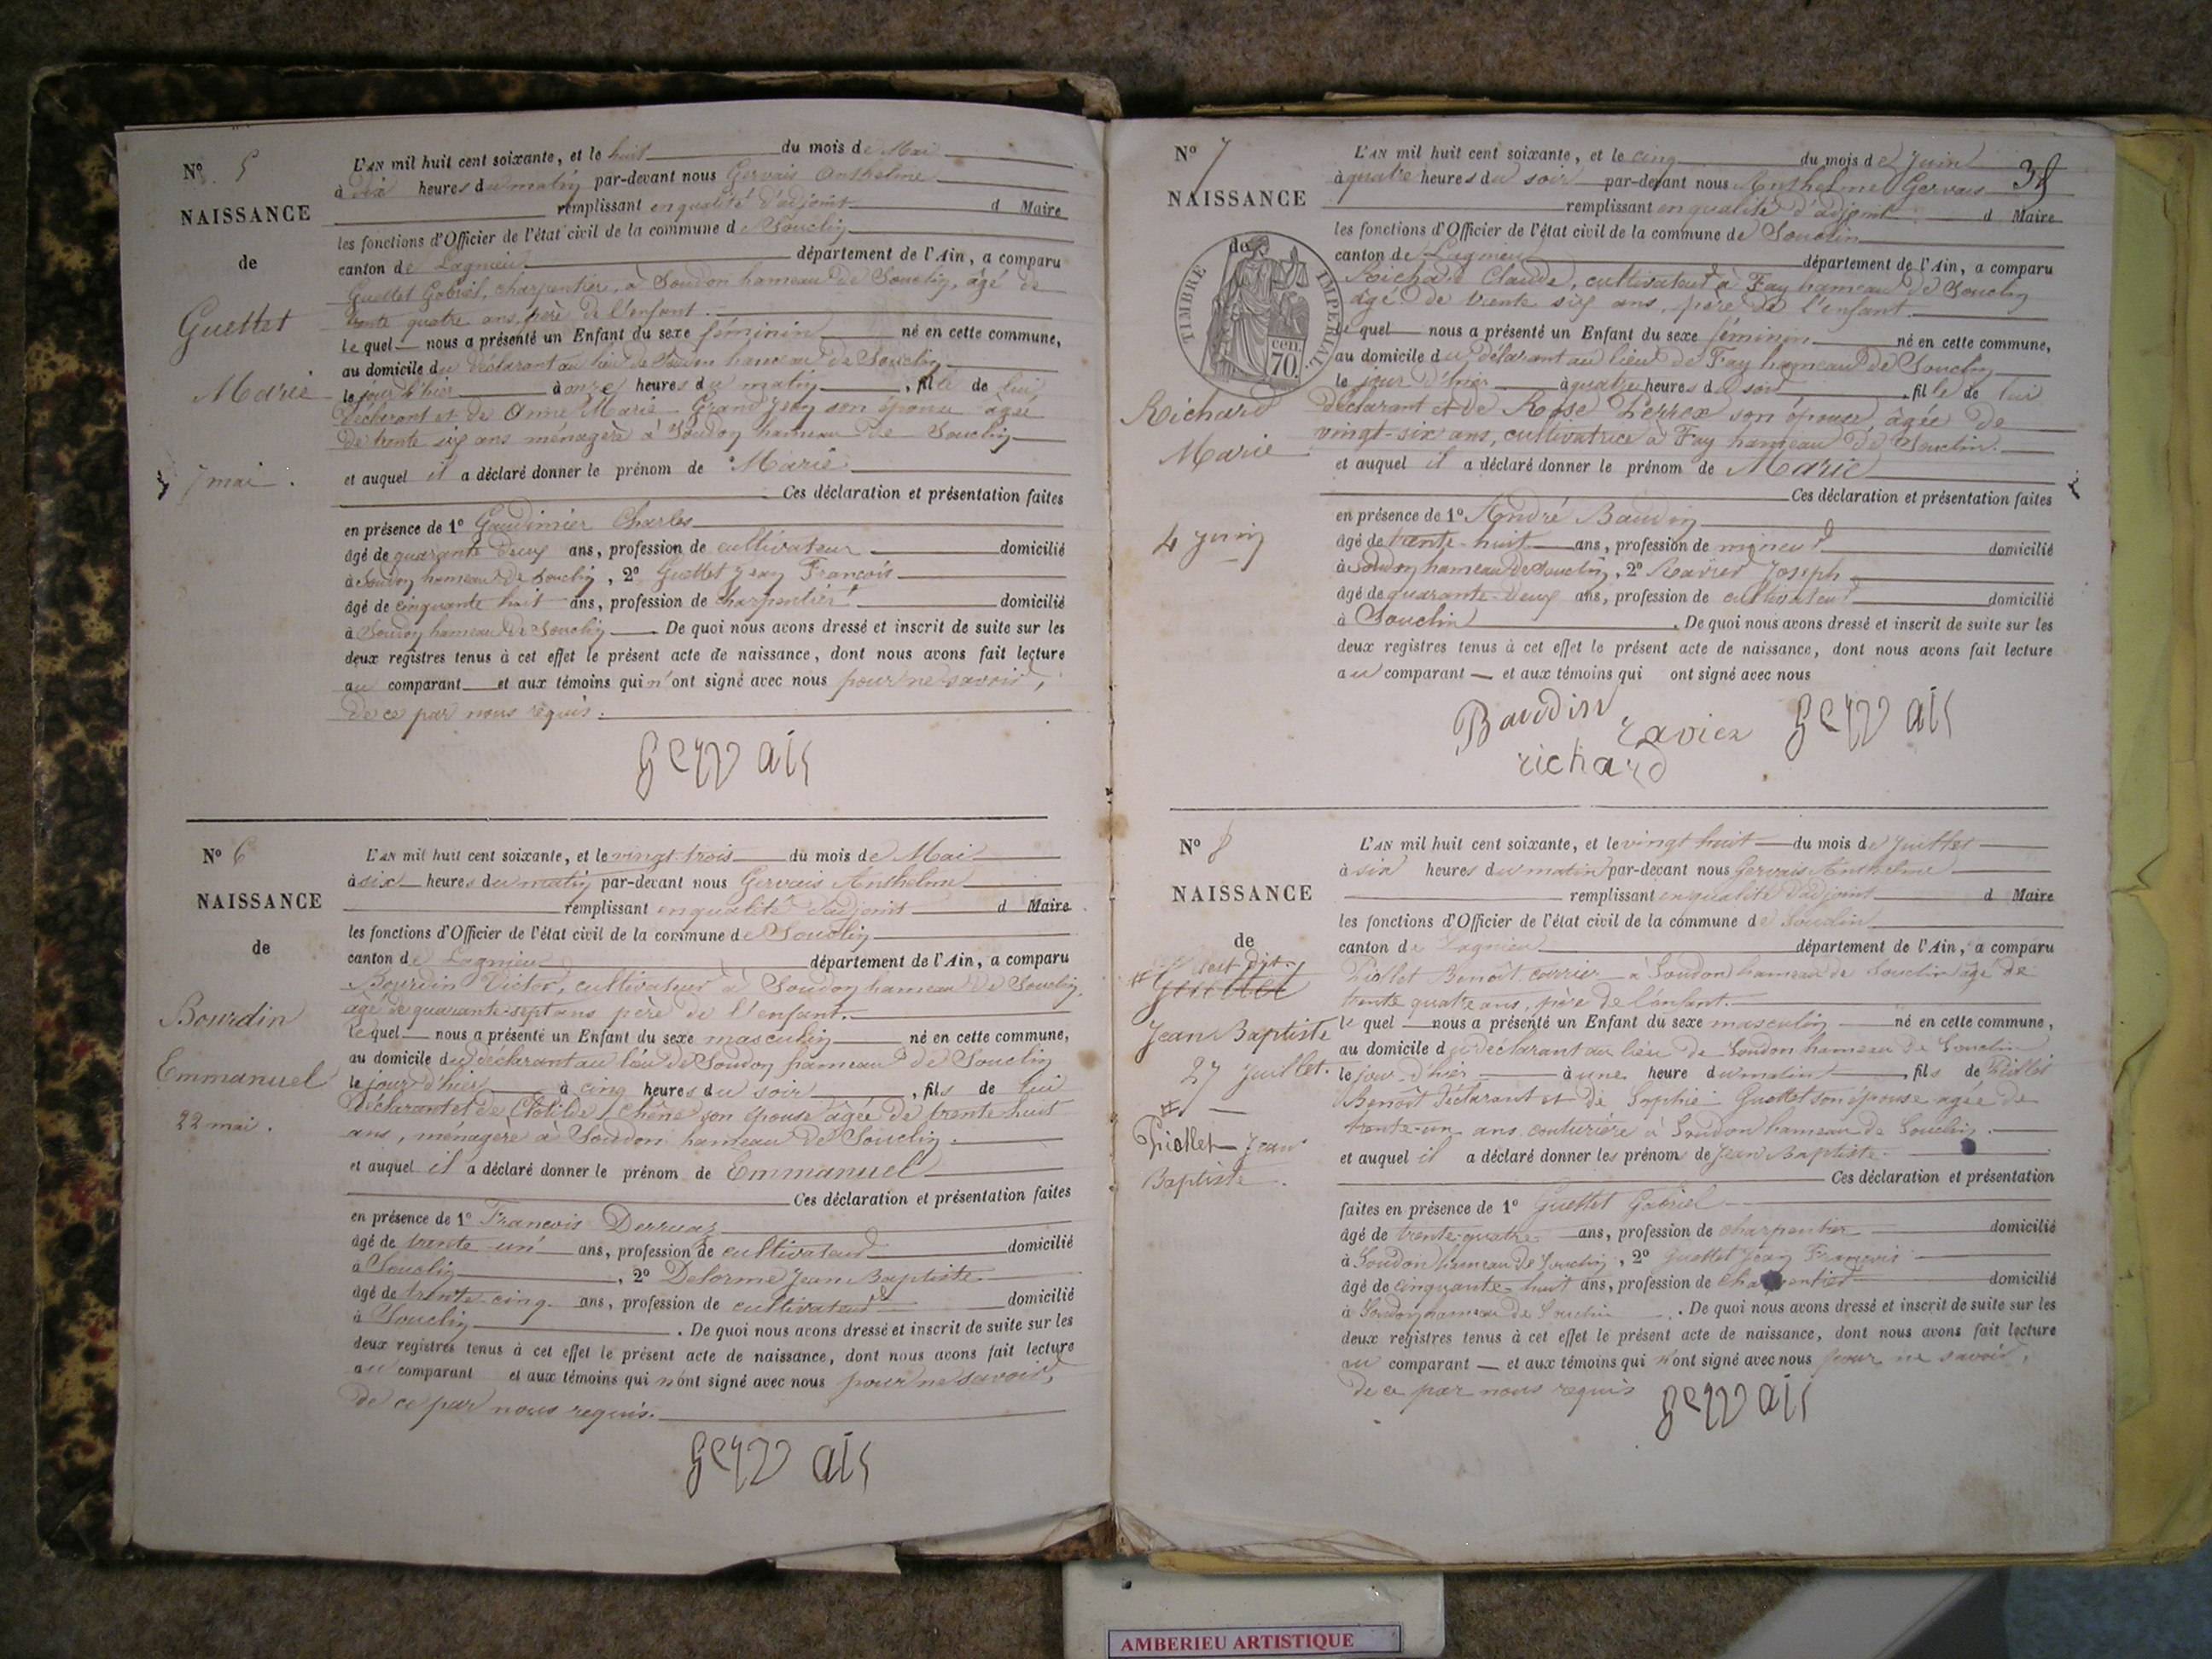 Nº 5
NAISSANCE
de
Guettet
Marie
7 mai.
L'AN mil huit cent soixante, et le huit du mois de Mai
à dix heures du matin par-devant nous Gervais Anthelme
remplissant en qualité d'adjoint d Maire
les fonctions d'Officier de l'état civil de la commune de Souclin
canton de Lagnieu département de l'Ain, a comparu
Guettet Gabriel, charpentier, à Soudon hameau de Souclin, âgé de
trente quatre ans, père de l'enfant.
Le quel nous a présenté un Enfant du sexe féminin né en cette commune,
au domicile du déclarant au lieu de Soudon hameau de Souclin
le jour d'hier à onze heures du matin, fille de lui
déclarant et de Anne Marie Grandjean son épouse âgée
de trente six ans ménagère à Soudon hameau de Souclin
et auquel il a déclaré donner le prénom de Marie
Ces déclaration et présentation faites
en présence de 1º Gaudinier Charles
âgé de quarante deux ans, profession de cultivateur domicilié
à Soudon hameau de Souclin, 2º Guettet Jean François
âgé de cinquante huit ans, profession de charpentier domicilié
à Soudon hameau de Souclin. De quoi nous avons dressé et inscrit de suite sur les
deux registres tenus à cet effet le présent acte de naissance, dont nous avons fait lecture
au comparant et aux témoins qui n'ont signé avec nous pour ne savoir,
de ce par nous requis.
Gervais
Nº 6
NAISSANCE
de
Bourdin
Emmanuel
22 mai.
L'AN mil huit cent soixante, et le vingt trois du mois de Mai
à six heures du matin par-devant nous Gervais Anthelme
remplissant en qualité d'adjoint d Maire
les fonctions d'Officier de l'état civil de la commune de Souclin
canton de Lagnieu département de l'Ain, a comparu
Bourdin Victor, cultivateur à Soudon hameau de Souclin,
âgé de quarante-sept ans père de l'enfant.
Le quel nous a présenté un Enfant du sexe masculin né en cette commune,
au domicile du déclarant au lieu de Soudon hameau de Souclin
le jour d'hier à cinq heures du soir, fils de lui
déclarant et de Clotilde Chêne son épouse âgée de trente huit
ans, ménagère à Soudon hameau de Souclin.
et auquel il a déclaré donner le prénom de Emmanuel
Ces déclaration et présentation faites
en présence de 1º François Derruaz
âgé de trente un ans, profession de cultivateur domicilié
à Souclin, 2º Delorme Jean Baptiste
âgé de trente-cinq ans, profession de cultivateur domicilié
à Souclin. De quoi nous avons dressé et inscrit de suite sur les
deux registres tenus à cet effet le présent acte de naissance, dont nous avons fait lecture
au comparant et aux témoins qui n'ont signé avec nous pour ne savoir,
de ce par nous requis.
Gervais
Nº 7
NAISSANCE
de
TIMBRE IMPERIAL
70 cen.
Richard
Marie
4 Juin
L'AN mil huit cent soixante, et le cinq du mois de Juin
à quatre heures du soir par-devant nous Anthelme Gervais
remplissant en qualité d'adjoint d Maire
les fonctions d'Officier de l'état civil de la commune de Souclin
canton de Lagnieu département de l'Ain, a comparu
Richard Claude, cultivateur à Fay hameau de Souclin
âgé de trente six ans, père de l'enfant.
Le quel nous a présenté un Enfant du sexe féminin né en cette commune,
au domicile du déclarant au lieu de Fay hameau de Souclin
le jour d'hier à quatre heures du soir, fille de lui
déclarant et de Rose Perrex son épouse, âgée de
vingt-six ans, cultivatrice à Fay hameau de Souclin.
et auquel il a déclaré donner le prénom de Marie
Ces déclaration et présentation faites
en présence de 1º André Baudin
âgé de trente-huit ans, profession de mineur domicilié
à Soudon hameau de Souclin, 2º Joseph
âgé de quarante-deux ans, profession de cultivateur domicilié
à Souclin. De quoi nous avons dressé et inscrit de suite sur les
deux registres tenus à cet effet le présent acte de naissance, dont nous avons fait lecture
au comparant et aux témoins qui ont signé avec nous
Baudin Gervais
richard
Nº 8
NAISSANCE
de
Guettet
Jean Baptiste
27 Juillet.
Piollet Jean
Baptiste.
L'AN mil huit cent soixante, et le vingt huit du mois de Juillet
à six heures du matin par-devant nous Gervais Anthelme
remplissant en qualité d'adjoint d Maire
les fonctions d'Officier de l'état civil de la commune de Souclin
canton de Lagnieu département de l'Ain, a comparu
Piollet Benoît à Soudon hameau de Souclin âgé de
trente quatre ans, père de l'enfant.
le quel nous a présenté un Enfant du sexe masculin né en cette commune,
au domicile du déclarant au lieu de Soudon hameau de Souclin
le jour d'hier à une heure du matin, fils de Piollet
Benoît déclarant et de Sophie Guettet son épouse âgée de
trente-un ans couturière à Soudon hameau de Souclin.
et auquel il a déclaré donner les prénoms de Jean Baptiste
Ces déclaration et présentation
faites en présence de 1º Guettet Gabriel
âgé de trente-quatre ans, profession de charpentier domicilié
à Soudon hameau de Souclin, 2º Guettet Jean François
âgé de cinquante-huit ans, profession de charpentier domicilié
à Soudon hameau de Souclin. De quoi nous avons dressé et inscrit de suite sur les
deux registres tenus à cet effet le présent acte de naissance, dont nous avons fait lecture
au comparant et aux témoins qui n'ont signé avec nous pour ne savoir,
de ce par nous requis
Gervais
AMBERIEU ARTISTIQUE